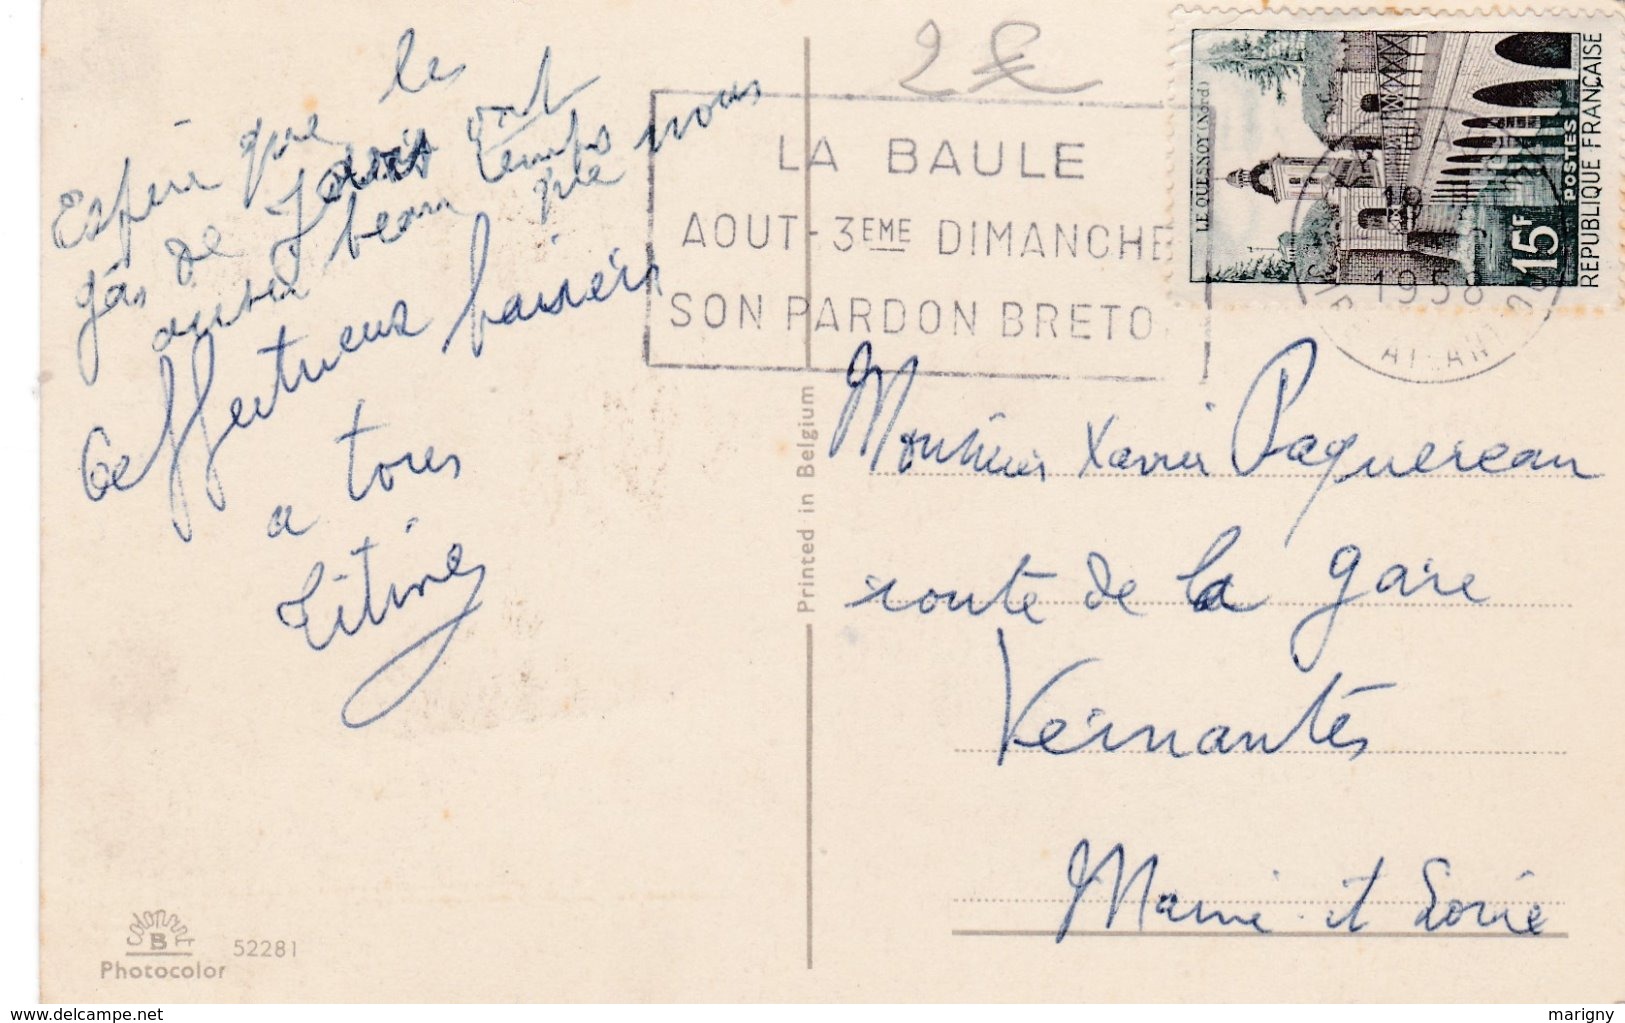 Espère que les
gâs de Jouis ont
aussi beau temps que nous
Affectueux baisers
a tous
Titine
2€
LA BAULE
AOUT - 3EME DIMANCHE
SON PARDON BRETO
LE QUESNOY (Nord)
15F
POSTES
REPUBLIQUE FRANÇAISE
1958
Printed in Belgium
Monsieur Xavier Paquereau
route de la gare
Vernantes
Maine et Loire
Colorprint
B
52281
Photocolor
delcampe.net
marigny